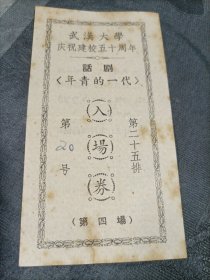 武漢大學
庆祝建校五十周年
話剧
〈年青的一代〉
入場券
第二十五排
第20号
(第四場)